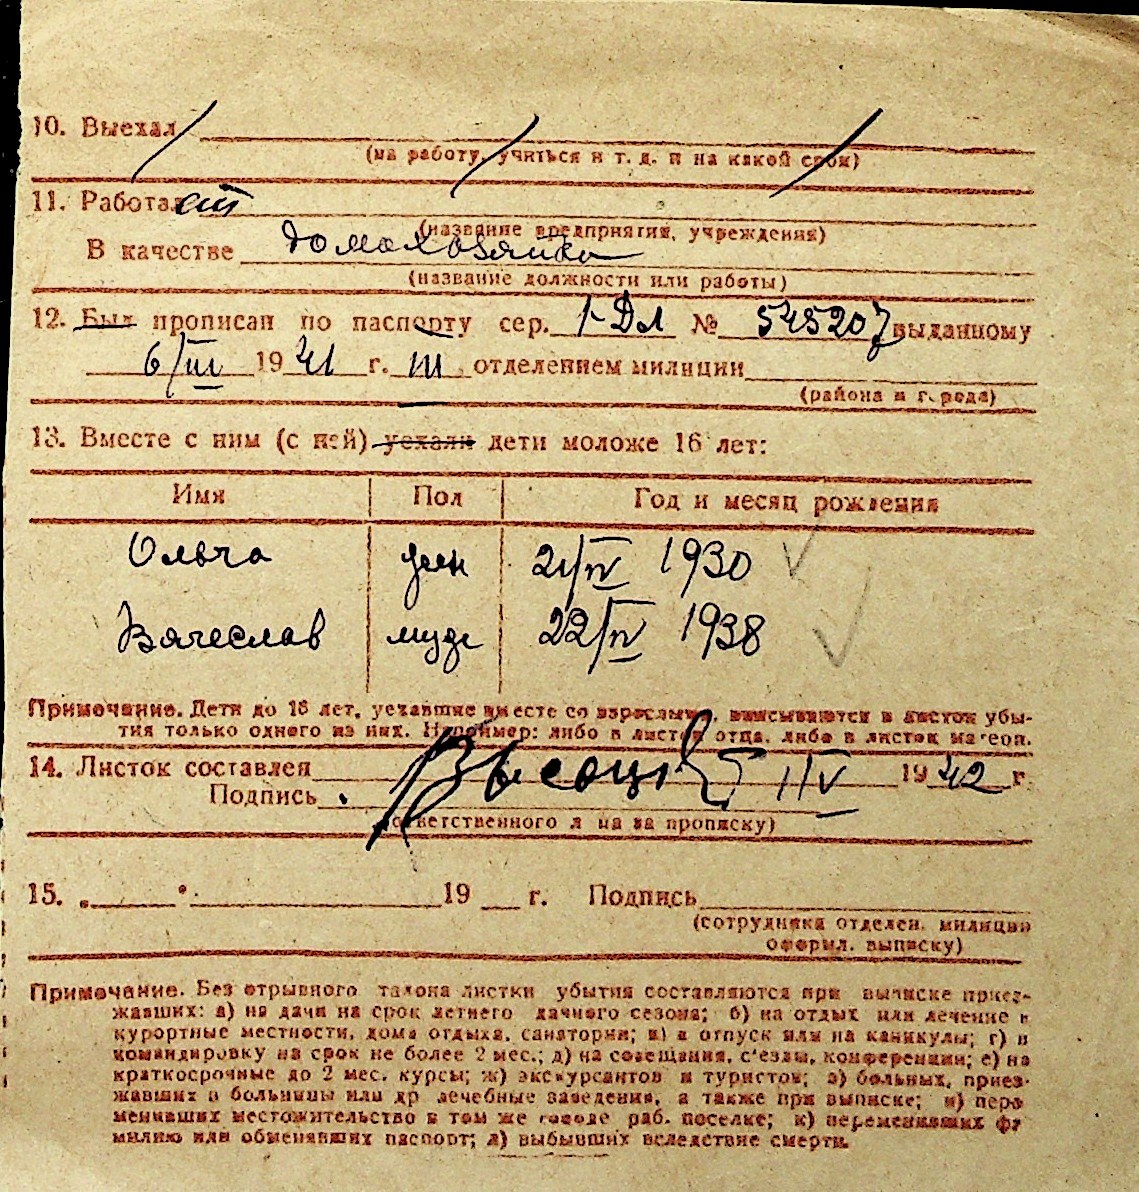 10. Выехал
(на работу, учиться и т. д. и на какой срок)
11. Работал
(название предприятия, учреждения)
В качестве домохозяйка
(название должности или работы)
12. Был прописан по паспорту сер. 1-Дл № 545207 выданному
6/III 1941 г. III отделением милиции
(района и города)
13. Вместе с ним (с ней) уехали дети моложе 16 лет:
Имя Пол Год и месяц рождения
Ольга жен 21/IV 1930
Вячеслав муж 22/IV 1938
Примечание. Дети до 16 лет, уехавшие вместе со взрослыми, вписываются в листок убы-
тия только одного из них. Например: либо в листок отца, либо в листок матери.
14. Листок составлен IV 1942 г.
Подпись
(ответственного лица за прописку)
15. „ “ 19 г. Подпись
(сотрудника отделен. милиции
оформл. выписку)
Примечание. Без отрывного талона листки убытия составляются при выписке приез-
жавших: а) на дачи на срок летнего дачного сезона; б) на отдых или лечение в
курортные местности, дома отдыха, санатории; в) в отпуск или на каникулы; г) в
командировку на срок не более 2 мес.; д) на совещания, с'езды, конференции; е) на
краткосрочные до 2 мес. курсы; ж) экскурсантов и туристов; з) больных, приез-
жавших в больницы или др лечебные заведения, а также при выписке; и) пере
менивших местожительство в том же городе раб. поселке; к) переменивших фа
милию или обменявших паспорт; л) выбывших вследствие смерти.